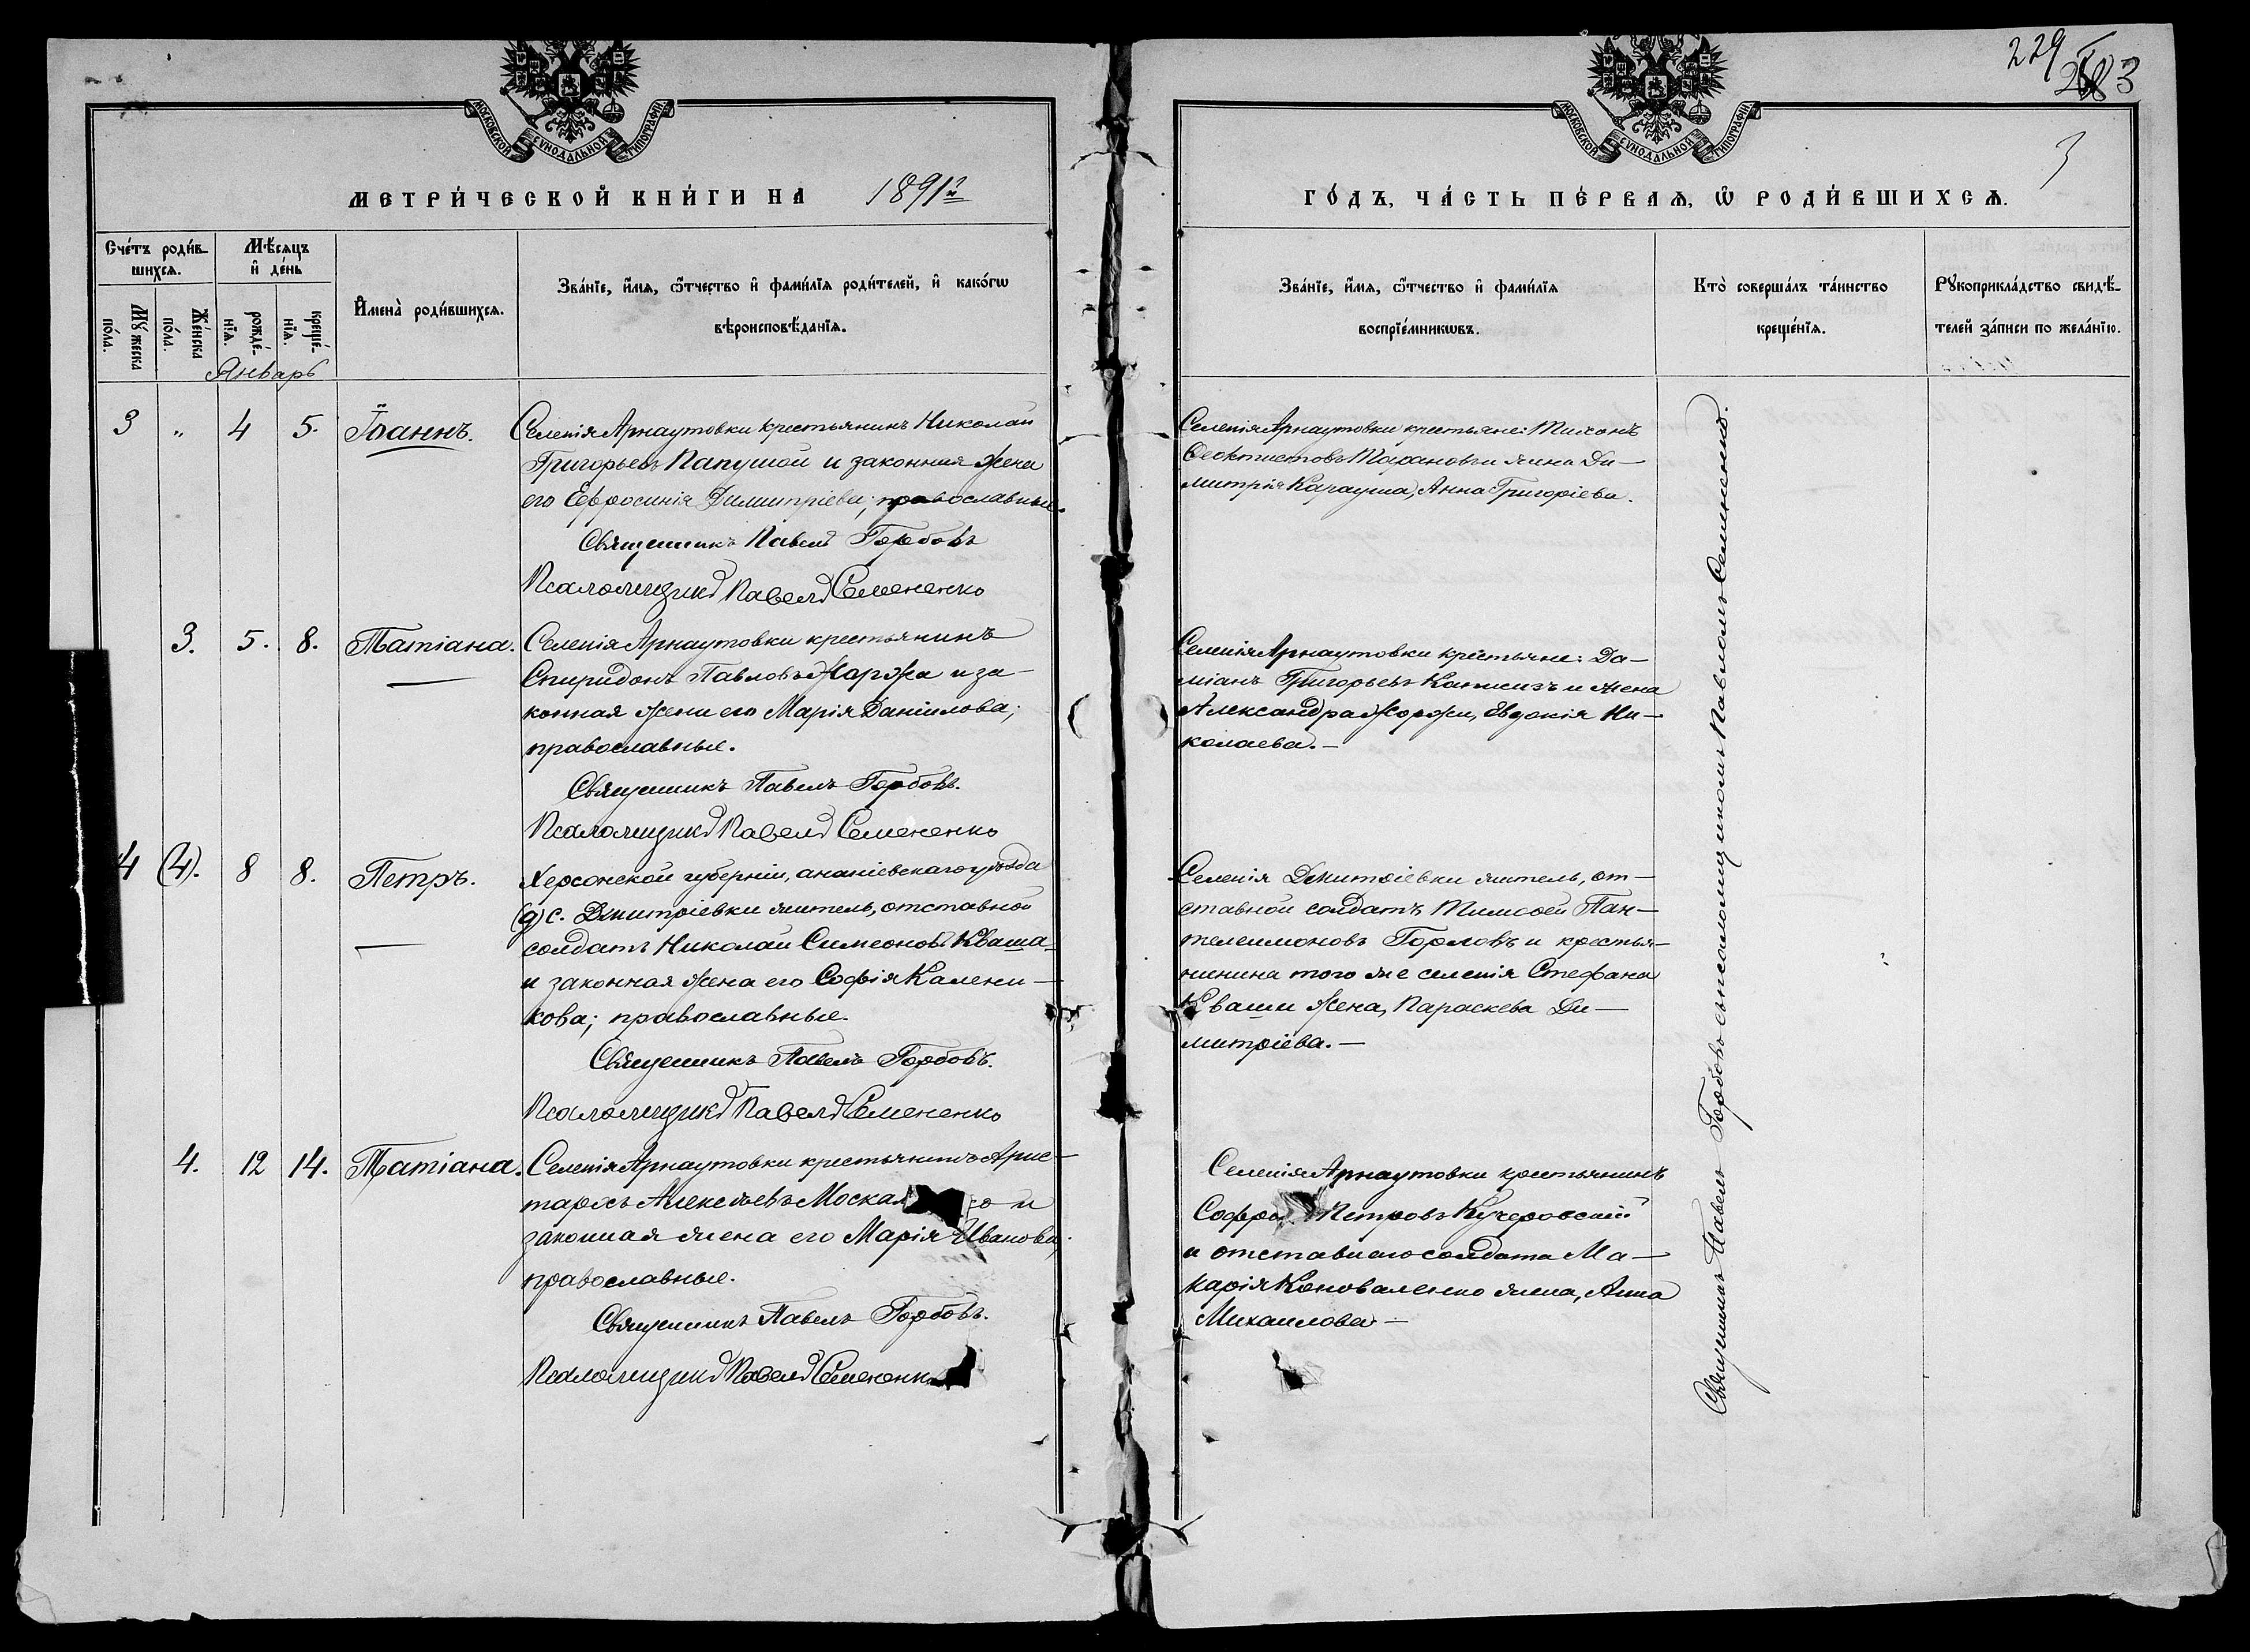 229
283
3
МОСКОВСКОЙ СѴНОДАЛЬНОЙ ТИПОГРАФІИ
МОСКОВСКОЙ СѴНОДАЛЬНОЙ ТИПОГРАФІИ
МЕТРИ́ЧЕСКОЙ КНИ́ГИ НА 1891 г.
ГО́ДЪ, ЧА́СТЬ ПЕ́РВАѦ, Ѽ РОДИ́ВШИХСѦ.
Сче́тъ роди́вшихсѧ.
Мꙋ́жеска по́ла.
Же́нска по́ла.
Мѣ́сѧцъ и҆ де́нь
рожде́нїѧ.
креще́нїѧ.
И҆мена̀ роди́вшихсѧ.
Зва́нїе, и҆́мѧ, ѻ҆́тчество и҆ фами́лїѧ роди́телей, и҆ како́гѡ
вѣроисповѣ́данїѧ.
Зва́нїе, и҆́мѧ, ѻ҆́тчество и҆ фами́лїѧ
воспрїе́мникѡвъ.
Кто̀ соверша́лъ та́инство
креще́нїѧ.
Рꙋкоприкла́дство свидѣ́-
телей за́писи по жела́нїю.
Январь
3 " 4 5. Іоаннъ.
Селенія Арнаутовки крестьянинъ Николай
Григорьевъ Папушой и законная жена
его Евфросинія Димитріева; православные.
Священникъ Павелъ Горбовъ
Псаломщикъ Павелъ Семененко
Селенія Арнаутовки крестьяне: Тихонъ
Феоктистовъ Тарановъ и жена Ди-
митрія Карауша, Анна Григоріева.
3. 5. 8. Татіана.
Селенія Арнаутовки крестьянинъ
Спиридонъ Павловъ Жоржа и за-
конная жена его Марія Даніилова;
православные.
Священникъ Павелъ Горбовъ.
Псаломщикъ Павелъ Семененко
Селенія Арнаутовки крестьяне: Да-
міанъ Григорьевъ и жена
Александра Жоржи, Евдокія Ни-
колаева.-
4 (4). 8 8. Петръ.
Херсонской губерніи, ананіевскаго уѣзда
(д) с. Дмитріевки житель, отставной
солдатъ Николай Симеоновъ Кваша
и законная жена его Софія Калени-
кова; православные.
Священникъ Павелъ Горбовъ.
Псаломщикъ Павелъ Семененко
Селенія Дмитріевки житель, от-
ставной солдатъ Тимофей Пан-
телеимоновъ Горловъ и крестья-
нинина того же селенія Стефана
Кваши жена, Параскева Ди-
митріева.-
4. 12 14. Татіана.
Селенія Арнаутовки крестьянинъ Арис-
тархъ Алексѣевъ Москал о и
законная жена его Марія Иванова;
православные.
Священникъ Павелъ Горбовъ.
Псаломщикъ Павелъ Семененк
Селенія Арнаутовки крестьянинъ
Софро Петровъ Кучеровскій
и отставнаго солдата Ма-
карія Коноваленко жена, Анна
Михаилова-
Священникъ Павелъ Горбовъ съ псаломщикомъ Павломъ Семененко.